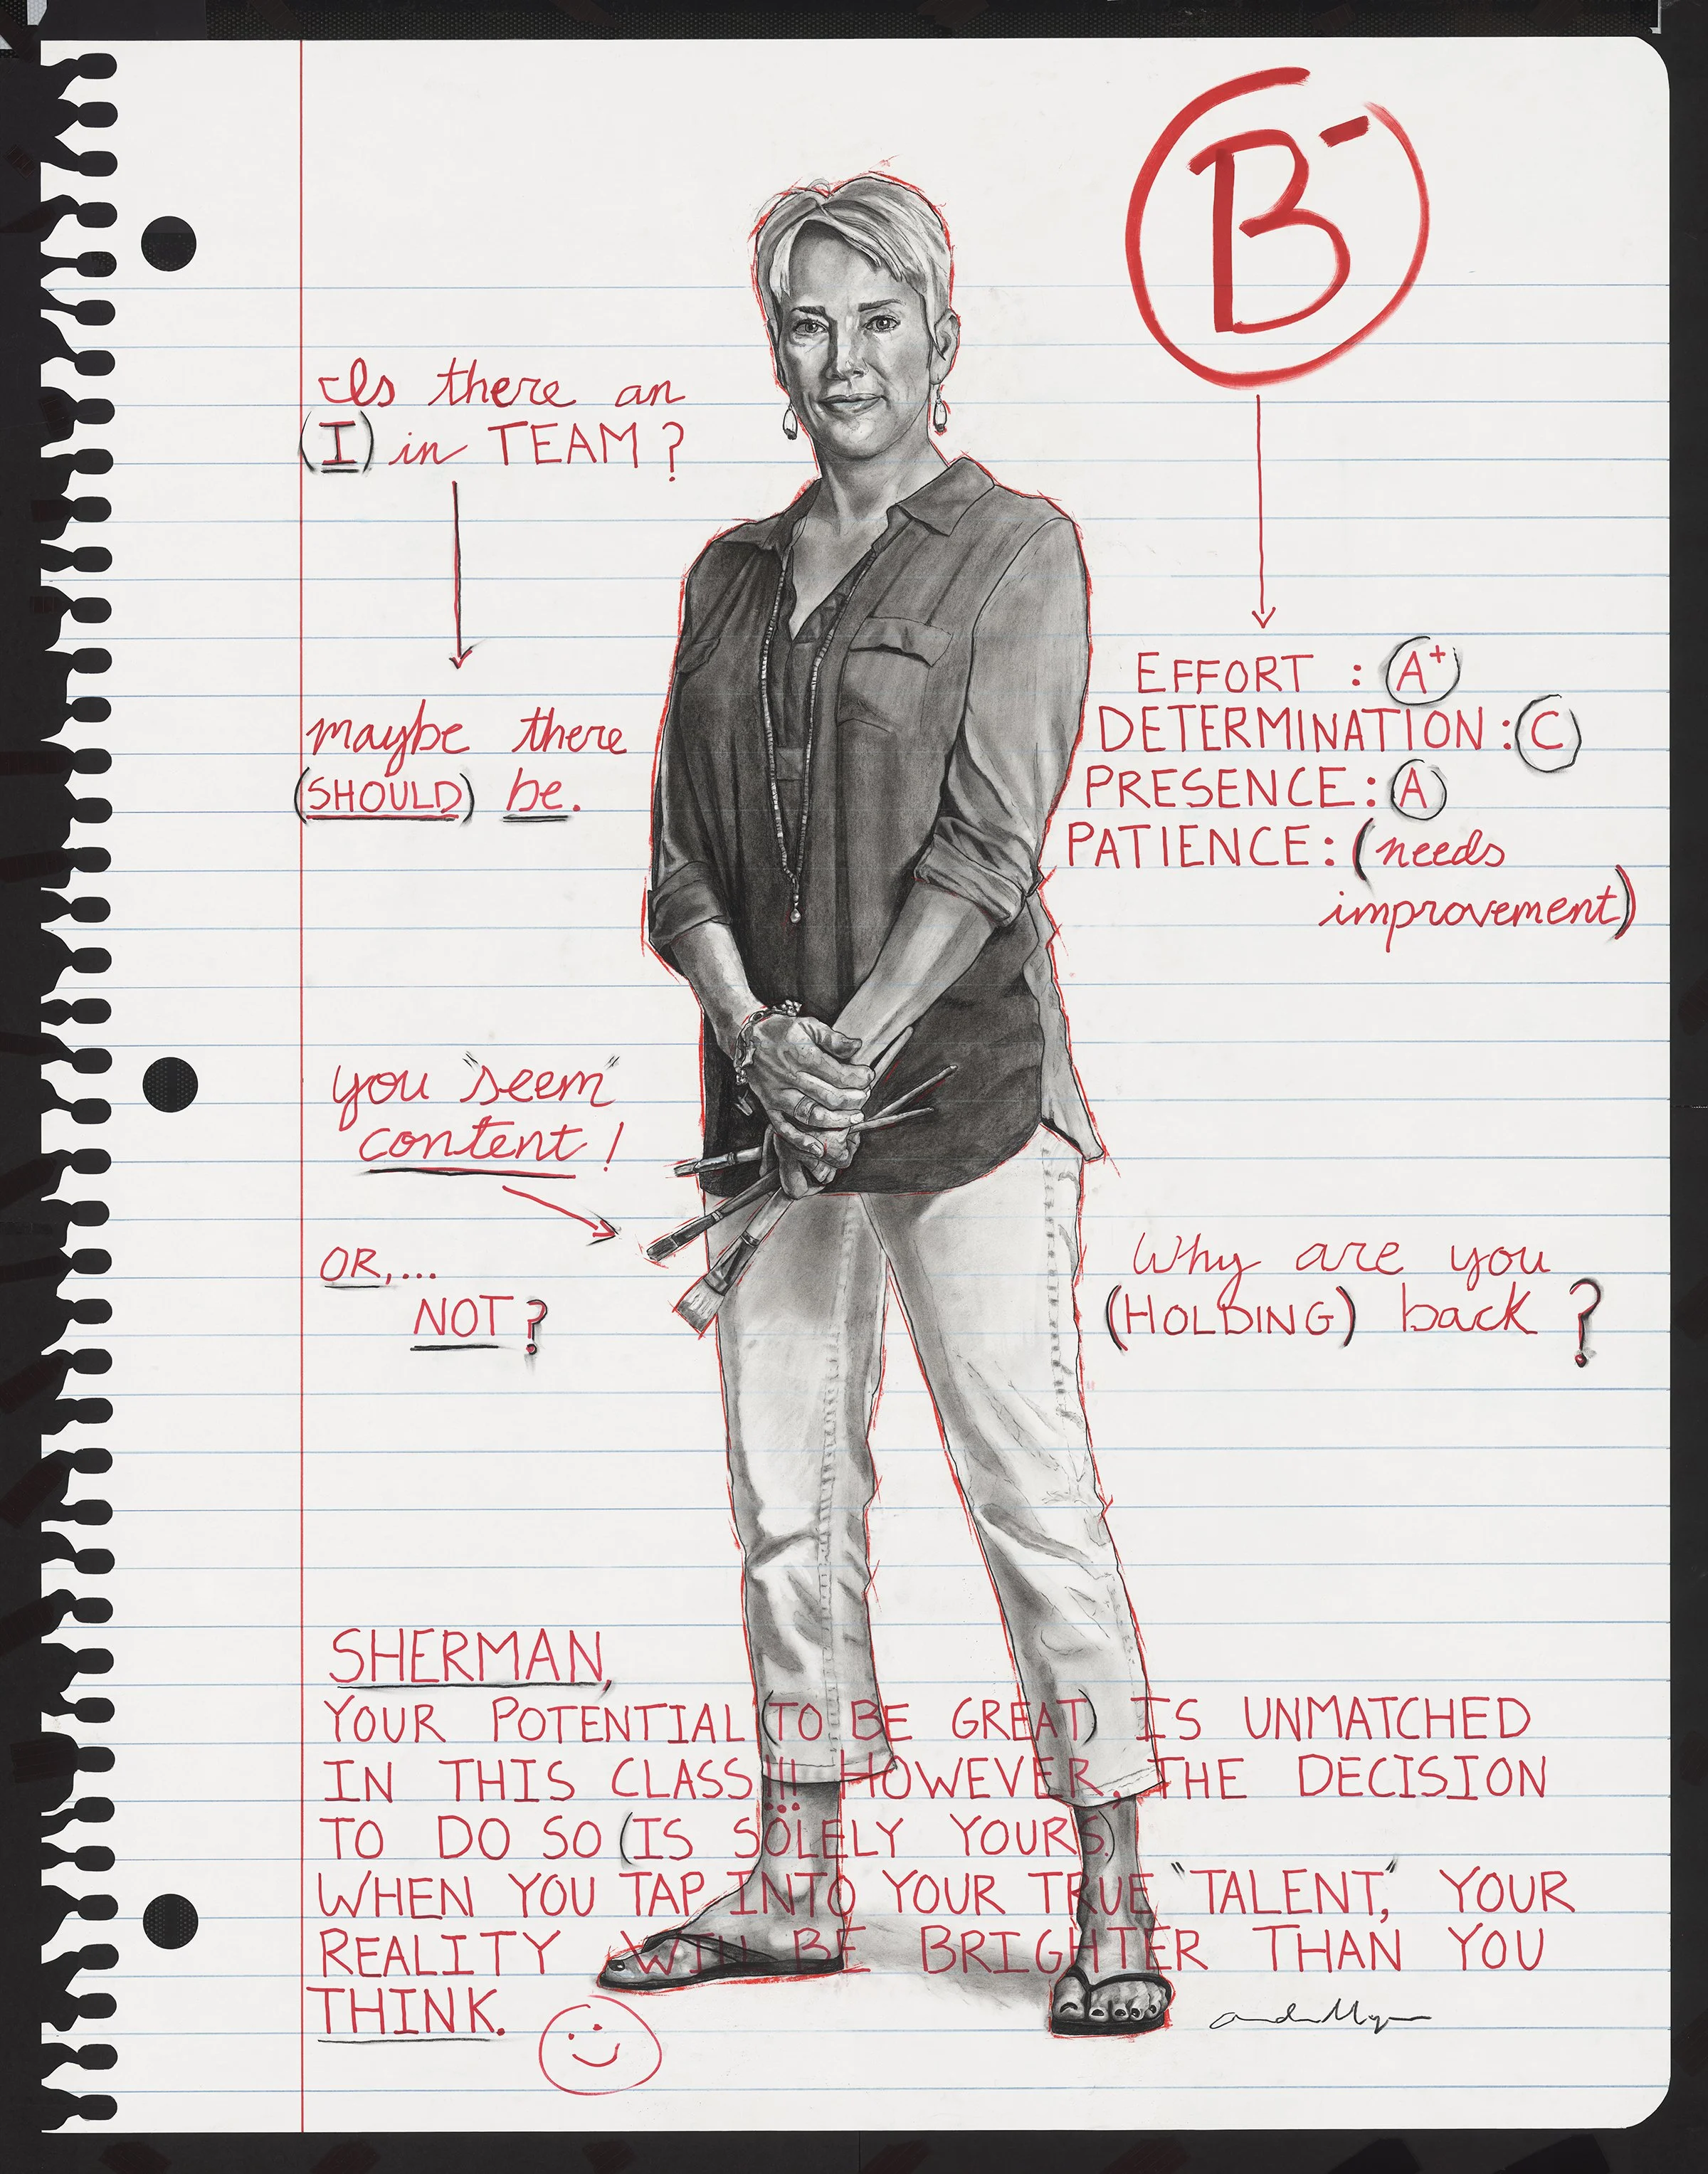 B-
Is there an
(I) in TEAM?
maybe there
(SHOULD) be.
EFFORT : A+
DETERMINATION : C
PRESENCE : A
PATIENCE : (needs
improvement)
you "seem"
content!
OR,...
NOT?
Why are you
(HOLDING) back?
SHERMAN,
YOUR POTENTIAL (TO BE GREAT) IS UNMATCHED
IN THIS CLASS!!! HOWEVER, THE DECISION
TO DO SO (IS SOLELY YOURS.)
WHEN YOU TAP INTO YOUR TRUE "TALENT," YOUR
REALITY WILL BE BRIGHTER THAN YOU
THINK.